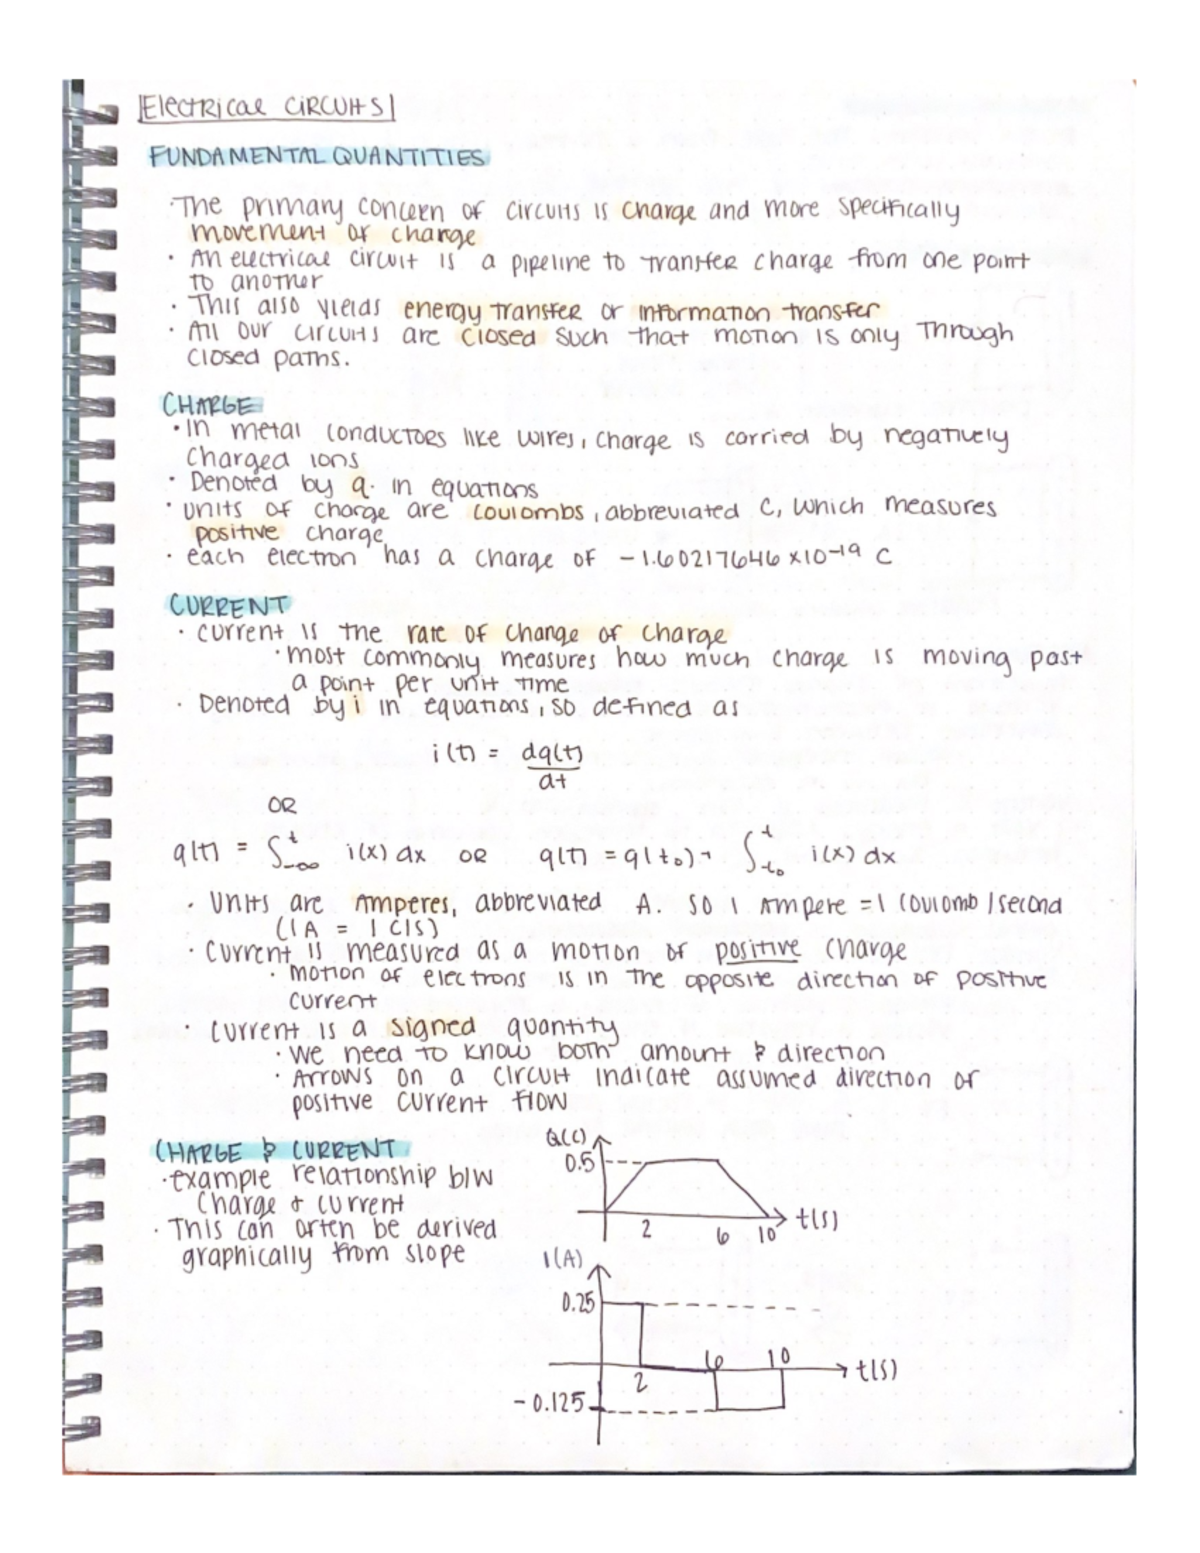 Electrical Circuits
FUNDAMENTAL QUANTITIES
· The primary concern of circuits is charge and more specifically
movement of charge
· An electrical circuit is a pipeline to transfer charge from one point
to another
· This also yields energy transfer or information transfer
· All our circuits are closed such that motion is only through
closed paths.
CHARGE
· In metal conductors like wires, charge is carried by negatively
charged ions
· Denoted by q. in equations
· units of charge are coulombs, abbreviated C, which measures
positive charge
· each electron has a charge of -1.60217646 x10-19 C
CURRENT
· current is the rate of change of charge
· most commonly measures how much charge is moving past
a point per unit time
· Denoted by i in equations, so defined as
i(t) = dq(t)
dt
OR
q(t) = ∫ t -∞ i(x) dx OR q(t) = q(t₀) + ∫ t t₀ i(x) dx
· Units are Amperes, abbreviated A. So 1 Ampere = 1 Coulomb/second
(1A = 1 C/S)
· Current is measured as a motion of positive charge
· motion of electrons is in the opposite direction of positive
current
· current is a signed quantity
· we need to know both amount & direction
· Arrows on a circuit indicate assumed direction of
positive current flow
CHARGE & CURRENT
· example relationship b/w
charge + current
· This can often be derived
graphically from slope
Q(C)
0.5
2 6 10 t(s)
I(A)
0.25
2 6 10 t(s)
-0.125